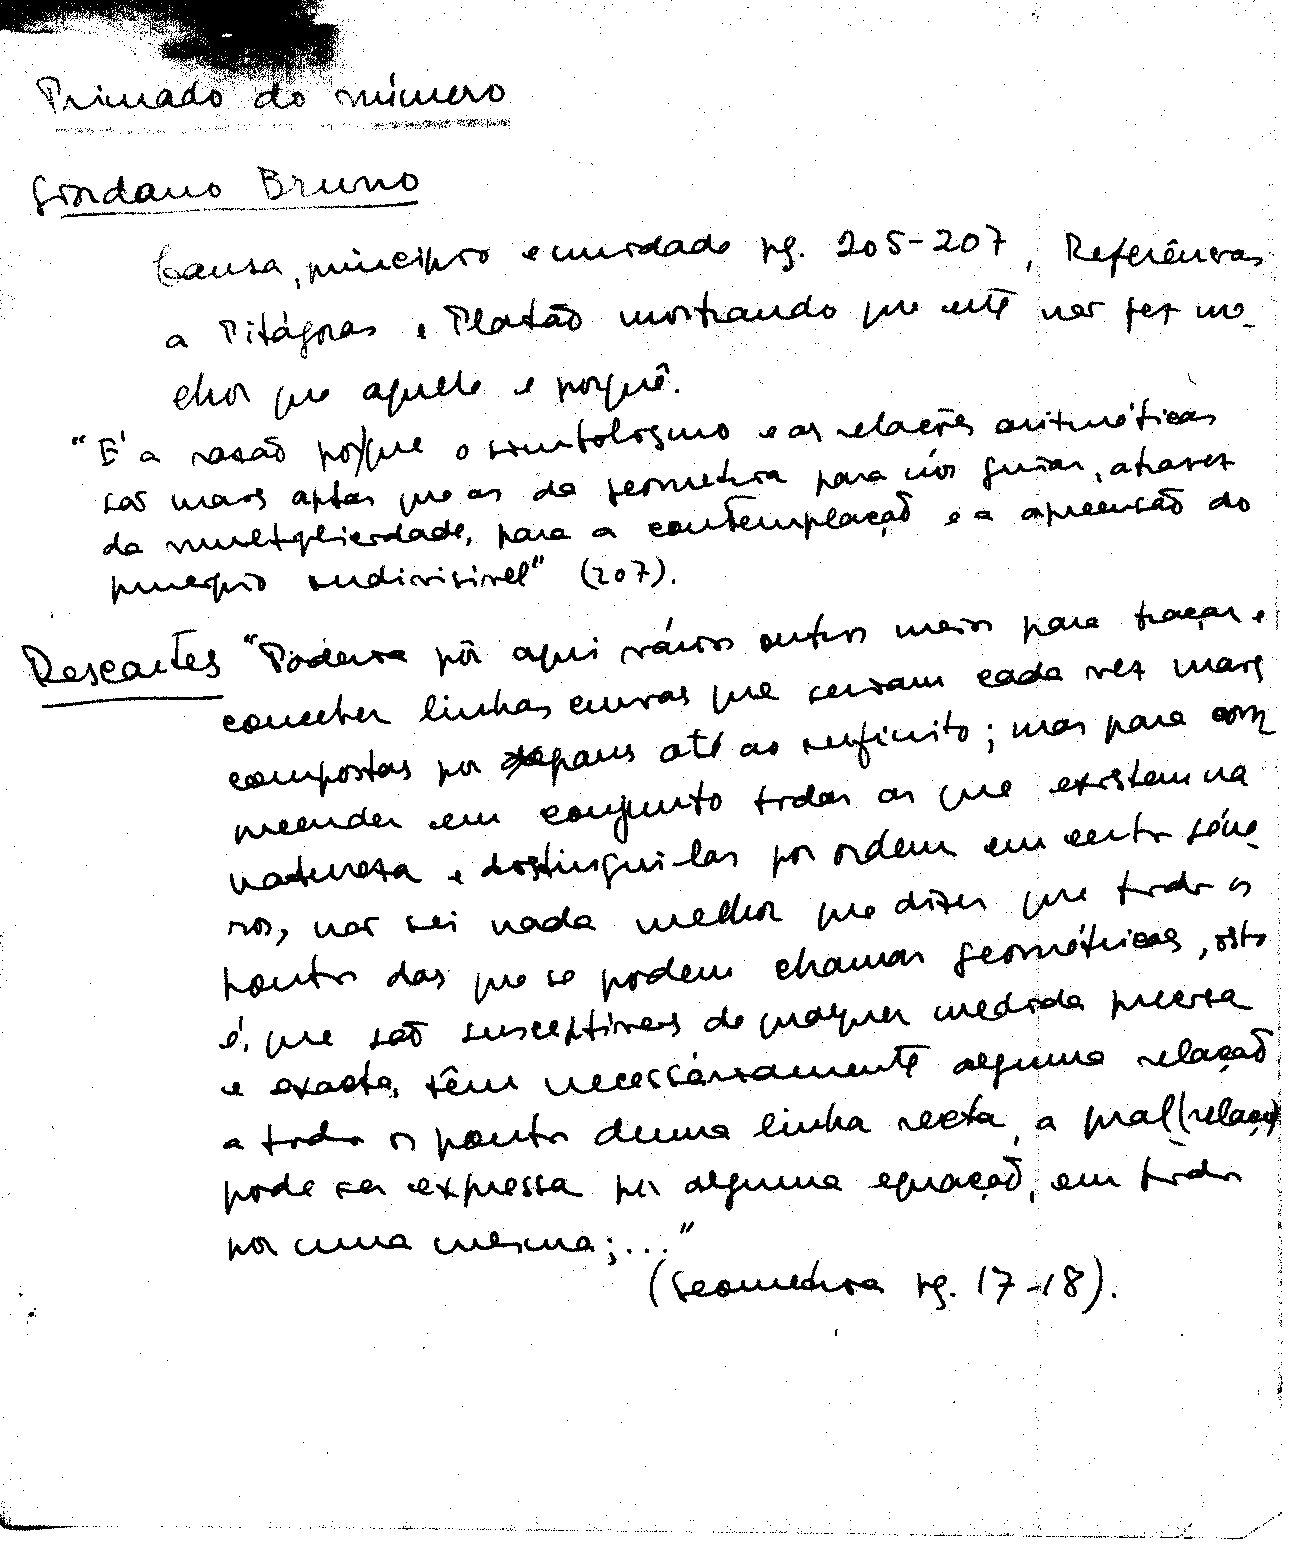 Primado do número
Giordano Bruno
Causa, princípio e unidade pg. 205-207, Referências
a Pitágoras e Platão mostrando que este não fez me-
lhor que aquele e porquê.
"É a razão porque o simbolismo e as relações aritméticas
são mais aptas que as da geometria para nós guiar, através
da multiplicidade, para a contemplação e a apreensão do
princípio indivisível" (207).
Descartes "Poderia pôr aqui vários outros meios para traçar e
conceber linhas curvas que seriam cada vez mais
compostas por graus até ao infinito; mas para com
preender em conjunto todas as que existem na
natureza e distingui-las por ordem em certos géne-
ros, não sei nada melhor que dizer que todos os
pontos das que se podem chamar geométricas, isto
é, que são susceptíveis de qualquer medida precisa
e exacta, têm necessáriamente alguma relação
a todos os pontos duma linha recta, a qual (relação)
pode ser expressa por alguma equação, em todos
por uma mesma; ..."
(Geometria pg. 17-18).